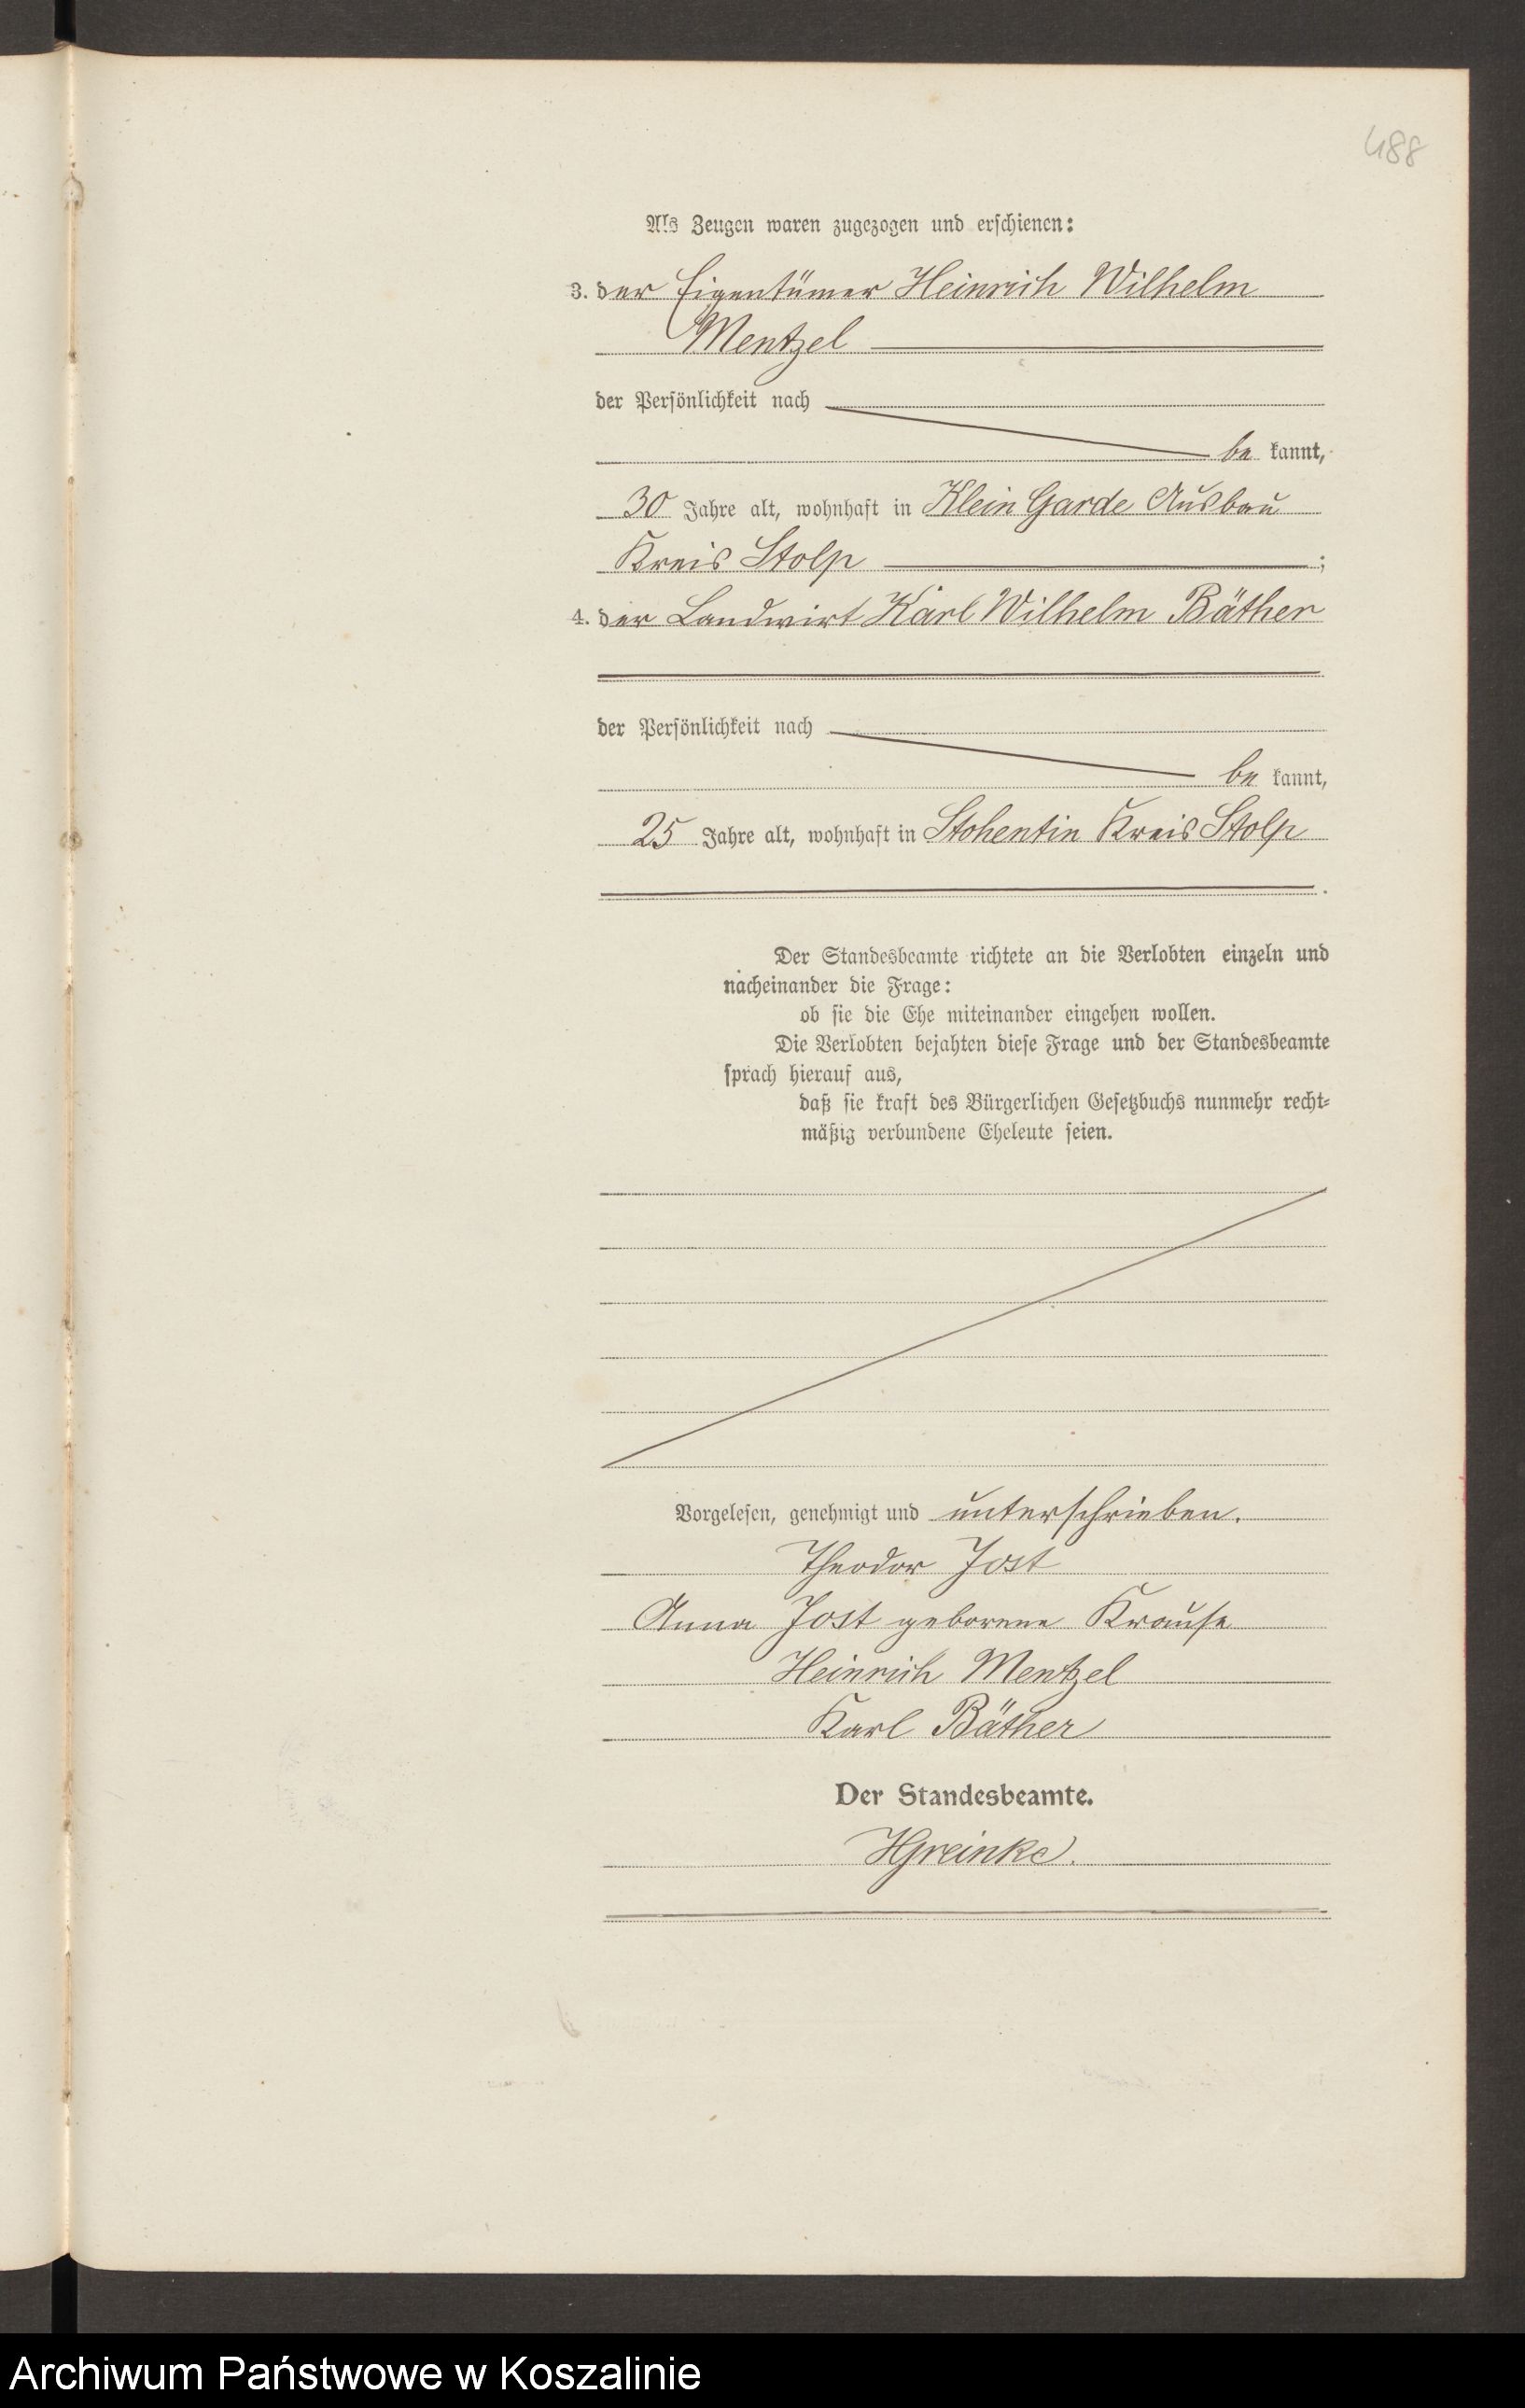 488
Als Zeugen waren zugezogen und erschienen:
3. der Eigentümer Heinrich Wilhelm
Mentzel
der Persönlichkeit nach
be kannt,
30 Jahre alt, wohnhaft in Klein Garde Ausbau
Kreis Stolp ;
4. der Landwirt Karl Wilhelm Bäther
der Persönlichkeit nach
be kannt,
25 Jahre alt, wohnhaft in Stohentin Kreis Stolp
.
Der Standesbeamte richtete an die Verlobten einzeln und
nacheinander die Frage:
ob sie die Ehe miteinander eingehen wollen.
Die Verlobten bejahten diese Frage und der Standesbeamte
sprach hierauf aus,
daß sie kraft des Bürgerlichen Gesetzbuchs nunmehr recht-
mäßig verbundene Eheleute seien.
Vorgelesen, genehmigt und unterschrieben.
Theodor Jost
Anna Jost geborene Krause
Heinrich Mentzel
Karl Bäther
Der Standesbeamte.
HGreinke.
Archiwum Państwowe w Koszalinie